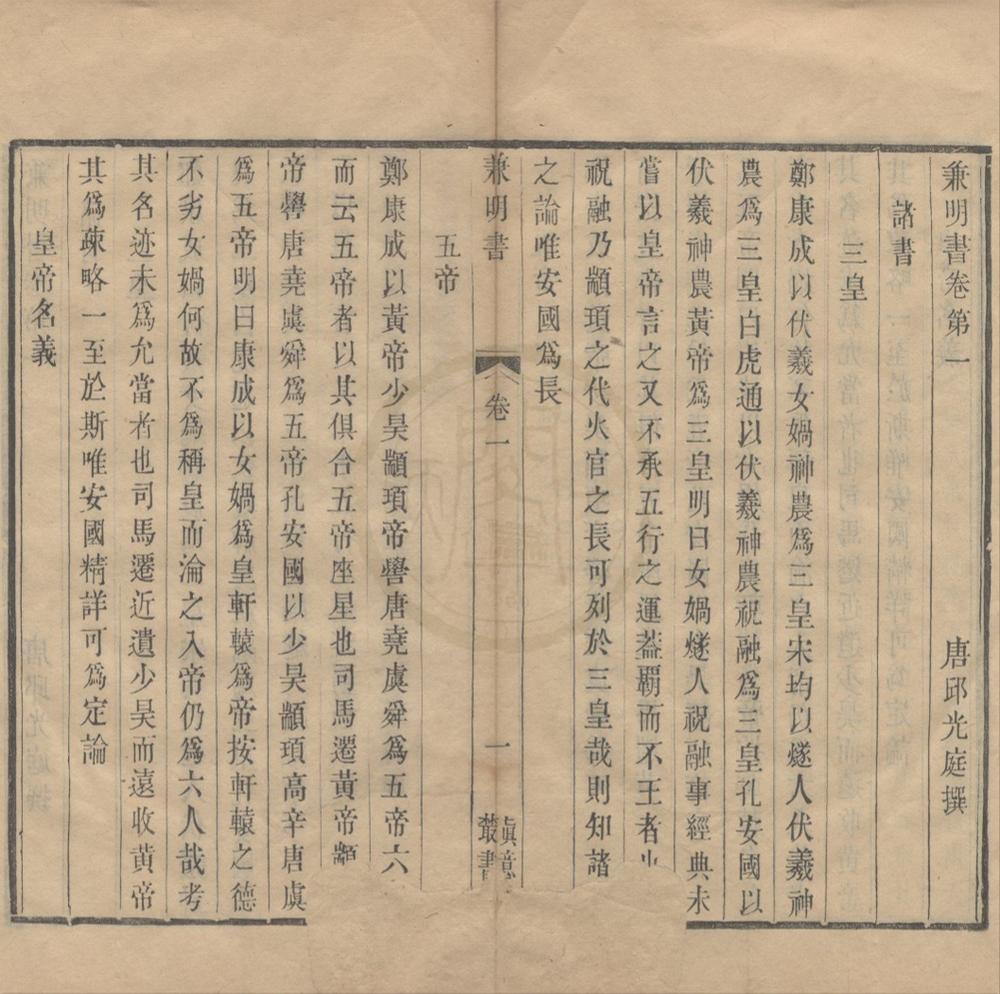 兼明書卷第一
唐邱光庭撰
諸書
三皇
鄭康成以伏羲女媧神農爲三皇宋均以燧人伏羲神
農爲三皇白虎通以伏羲神農祝融爲三皇孔安國以
伏羲神農黃帝爲三皇明曰女媧燧人祝融事經典未
嘗以皇帝言之又不承五行之運蓋霸而不王者也
祝融乃顓頊之代火官之長可列於三皇哉則知諸
之論唯安國爲長
兼明書
卷一
一
眞意
叢書
五帝
鄭康成以黃帝少昊顓頊帝嚳唐堯虞舜爲五帝六
而云五帝者以其俱合五帝座星也司馬遷黃帝顓
帝嚳唐堯虞舜爲五帝孔安國以少昊顓頊高辛唐虞
爲五帝明曰康成以女媧爲皇軒轅爲帝按軒轅之德
不劣女媧何故不爲稱皇而淪之入帝仍爲六人哉考
其名迹未爲允當者也司馬遷近遺少昊而遠收黃帝
其爲疎略一至於斯唯安國精詳可爲定論
皇帝名義